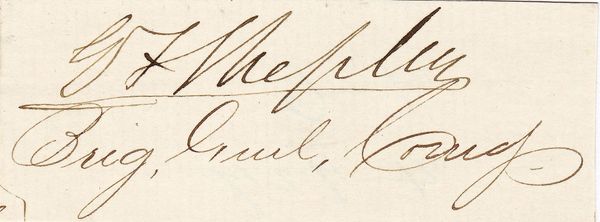 G F Shepley
Brig, Genl, Comdg.